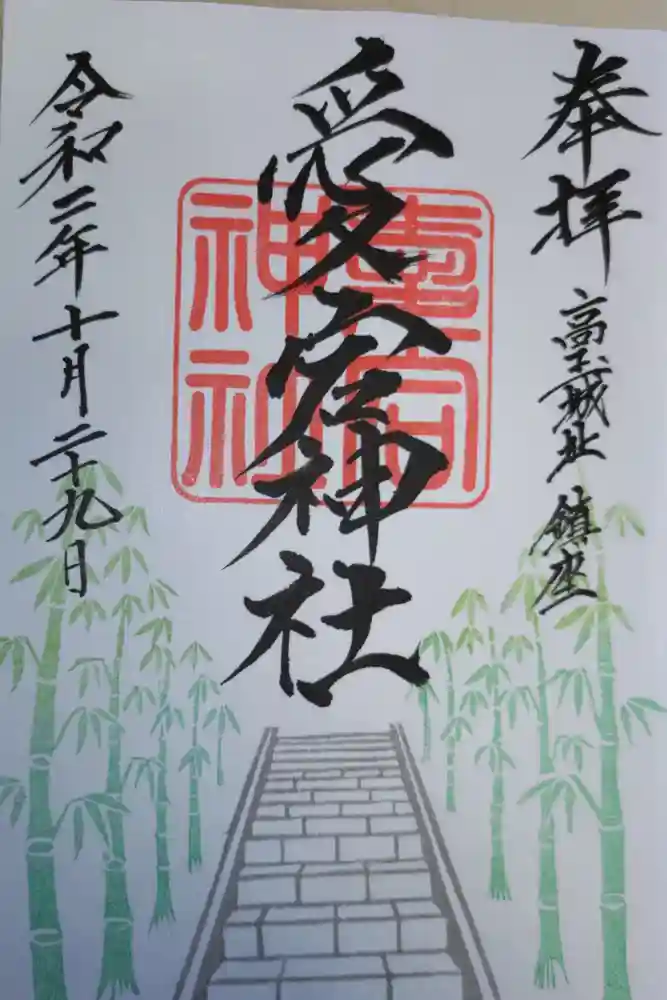 奉拝
高玉城址 鎮座
愛宕神社
愛宕神社
令和二年十月二十九日